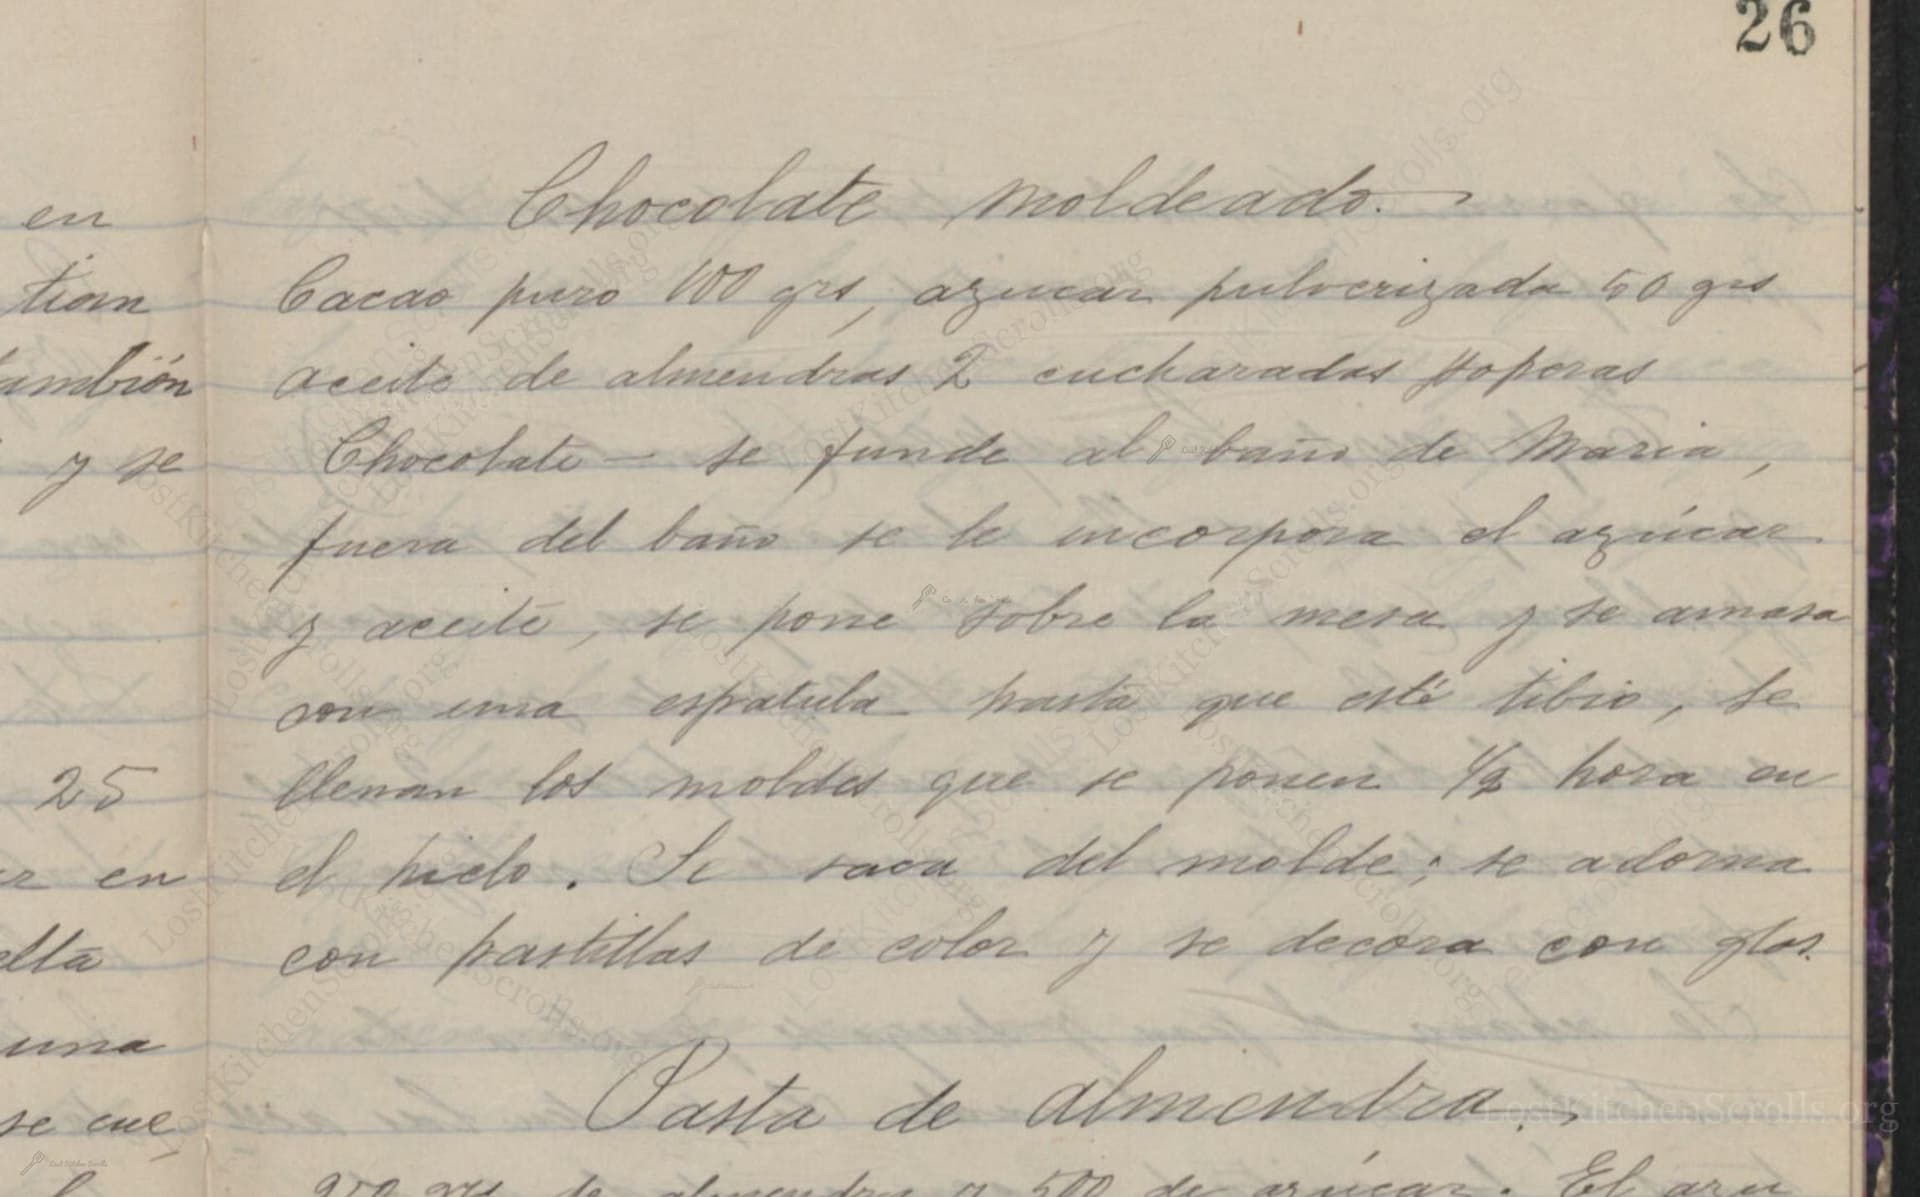 26
en
tian
también
y se
25
en
una
se cue
Chocolate Moldeado.
Cacao puro 100 grs, azucar pulverizada 50 grs
aceite de almendras 2 cucharadas soperas
Chocolate — se funde al baño de Maria,
fuera del baño se le incorpora el azúcar
y aceite, se pone sobre la mesa y se amasa
con una espatula hasta que esté tibio, se
llenan los moldes que se ponen 1/2 hora en
el hielo. Se saca del molde; se adorna
con pastillas de color y se decora con glas.
Pasta de almendra.
grs de almendras y 500 de azúcar. El azu
LostKitchenScrolls.org